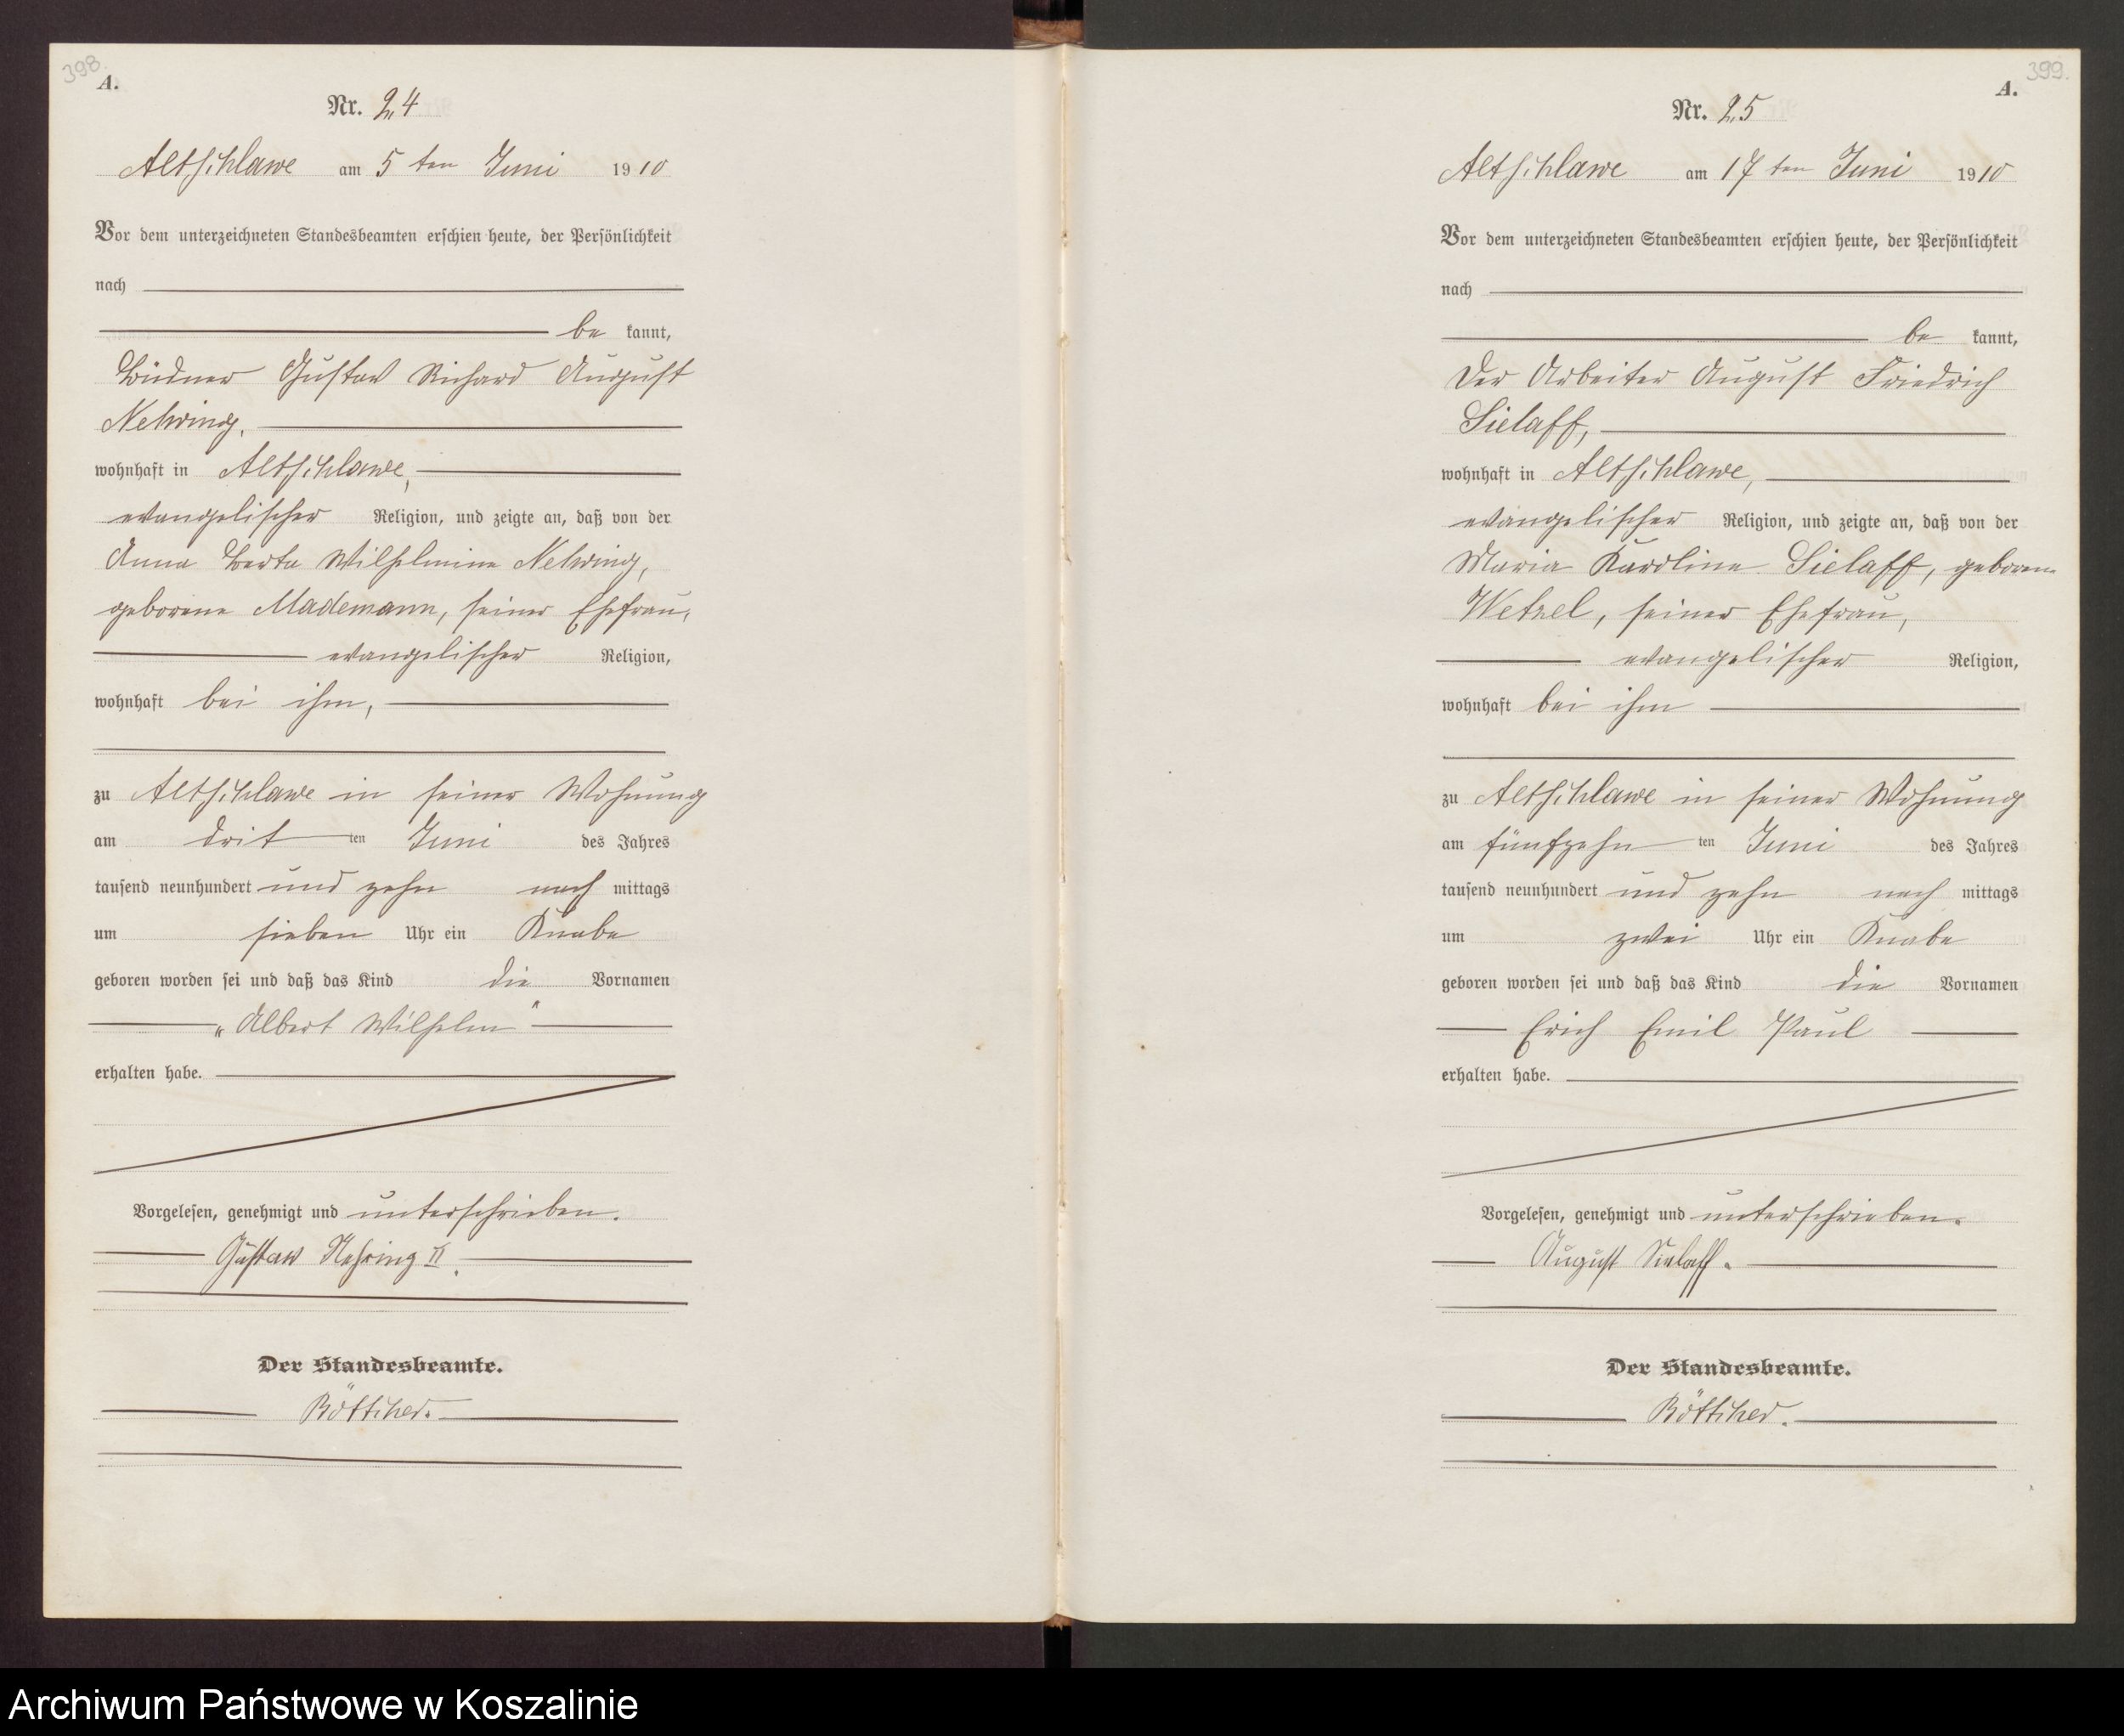 398.
A.
Nr. 24
Altschlawe am 5 ten Juni 1910
Vor dem unterzeichneten Standesbeamten erschien heute, der Persönlichkeit
nach
be kannt,
Büdner Gustav Richard August
Nehring,
wohnhaft in Altschlawe,
evangelischer Religion, und zeigte an, daß von der
Anna Berta Wilhelmine Nehring,
geborene Mademann, seiner Ehefrau,
evangelischer Religion,
wohnhaft bei ihm,
zu Altschlawe in seiner Wohnung
am drit ten Juni des Jahres
tausend neunhundert und zehn nach mittags
um sieben Uhr ein Knabe
geboren worden sei und daß das Kind die Vornamen
„Albert Wilhelm"
erhalten habe.
Vorgelesen, genehmigt und unterschrieben.
Gustav Nehring II.
Der Standesbeamte.
Böttcher.
399.
A.
Nr. 25
Altschlawe am 17 ten Juni 1910
Vor dem unterzeichneten Standesbeamten erschien heute, der Persönlichkeit
nach
be kannt,
Der Arbeiter August Friedrich
Sielaff,
wohnhaft in Altschlawe,
evangelischer Religion, und zeigte an, daß von der
Maria Karoline Sielaff, geborene
Wetzel, seiner Ehefrau,
evangelischer Religion,
wohnhaft bei ihm
zu Altschlawe in seiner Wohnung
am fünfzehn ten Juni des Jahres
tausend neunhundert und zehn nach mittags
um zwei Uhr ein Knabe
geboren worden sei und daß das Kind die Vornamen
Erich Emil Paul
erhalten habe.
Vorgelesen, genehmigt und unterschrieben.
August Sielaff.
Der Standesbeamte.
Böttcher.
Archiwum Państwowe w Koszalinie